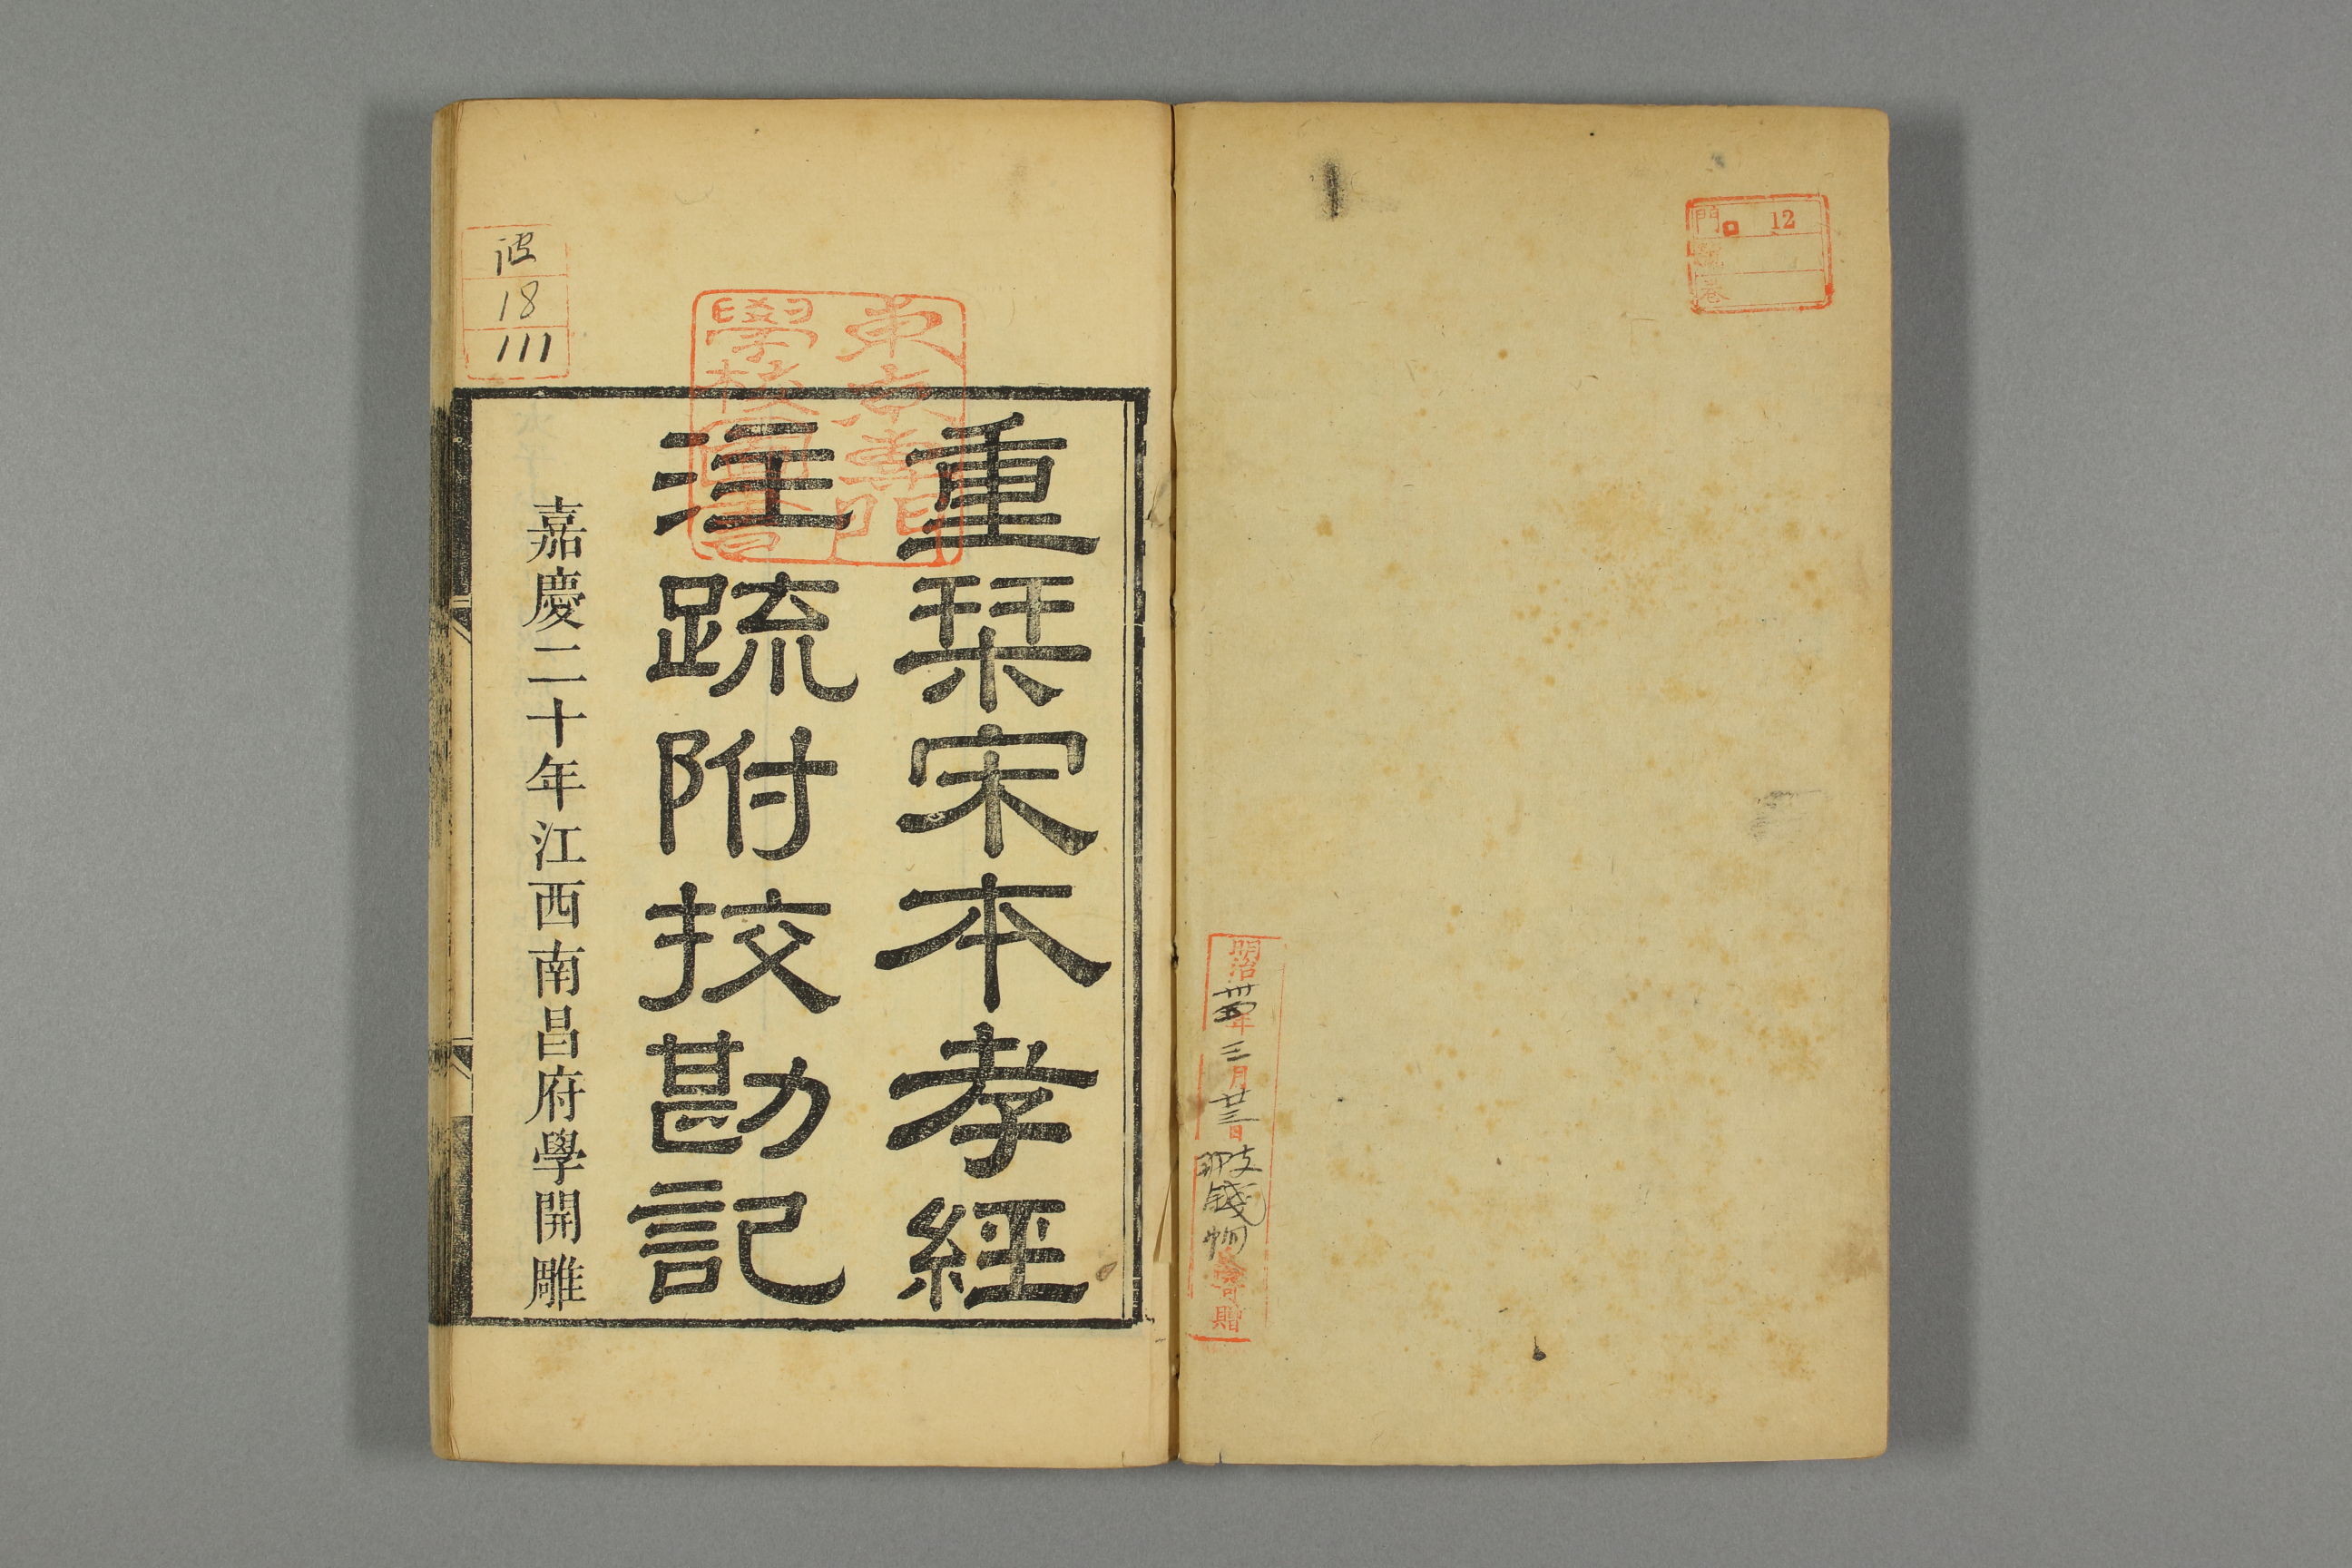 門 12
號
巻
明治卅四年三月廿三日
寄贈
重栞宋本孝經
注疏附挍勘記
嘉慶二十年江西南昌府學開雕
東京專門
學校圖書
18
111